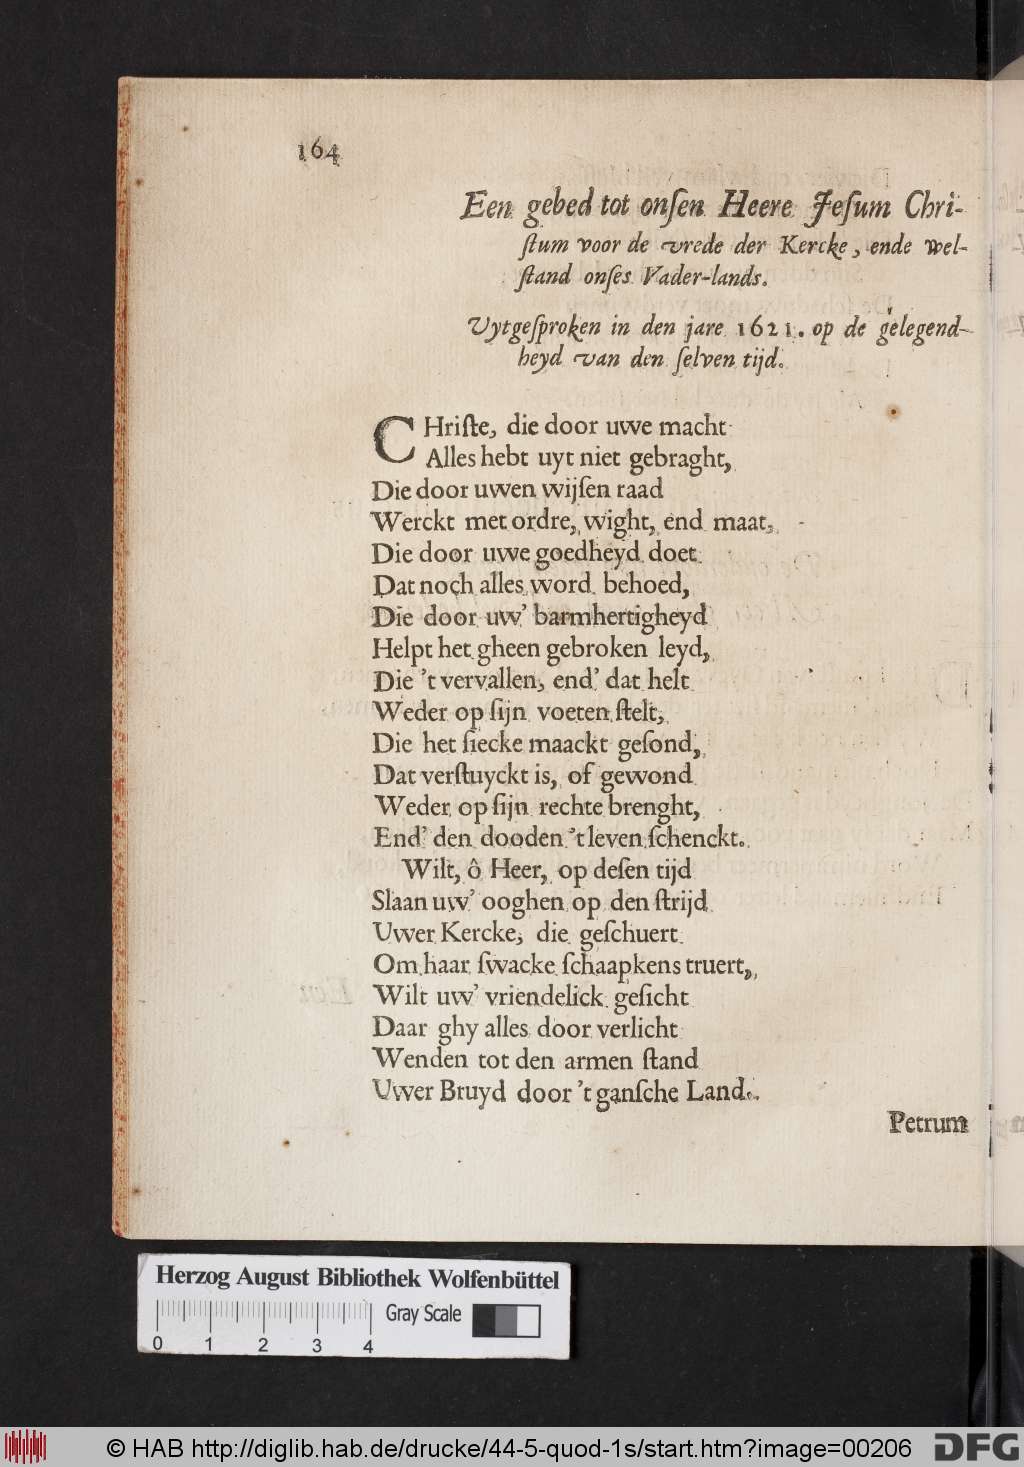 164
Een gebed tot onſen Heere Jeſum Chri-
ſtum voor de vrede der Kercke, ende wel-
ſtand onſes Vader-lands.
Uytgeſproken in den jare 1621. op de gelegend-
heyd van den ſelven tijd.
CHriſte, die door uwe macht
Alles hebt uyt niet gebraght,
Die door uwen wijſen raad
Werckt met ordre, wight, end maat,
Die door uwe goedheyd doet
Dat noch alles word behoed,
Die door uw' barmhertigheyd
Helpt het gheen gebroken leyd,
Die 't vervallen, end' dat helt
Weder op ſijn voeten ſtelt,
Die het ſiecke maackt geſond,
Dat verſtuyckt is, of gewond
Weder op ſijn rechte brenght,
End' den dooden 't leven ſchenckt.
Wilt, ô Heer, op deſen tijd
Slaan uw' ooghen op den ſtrijd
Uwer Kercke, die geſchuert
Om haar ſwacke ſchaapkens truert,
Wilt uw' vriendelick geſicht
Daar ghy alles door verlicht
Wenden tot den armen ſtand
Uwer Bruyd door 't ganſche Land.
Petrum
Herzog August Bibliothek Wolfenbüttel
Gray Scale
0 1 2 3 4
© HAB http://diglib.hab.de/drucke/44-5-quod-1s/start.htm?image=00206
DFG